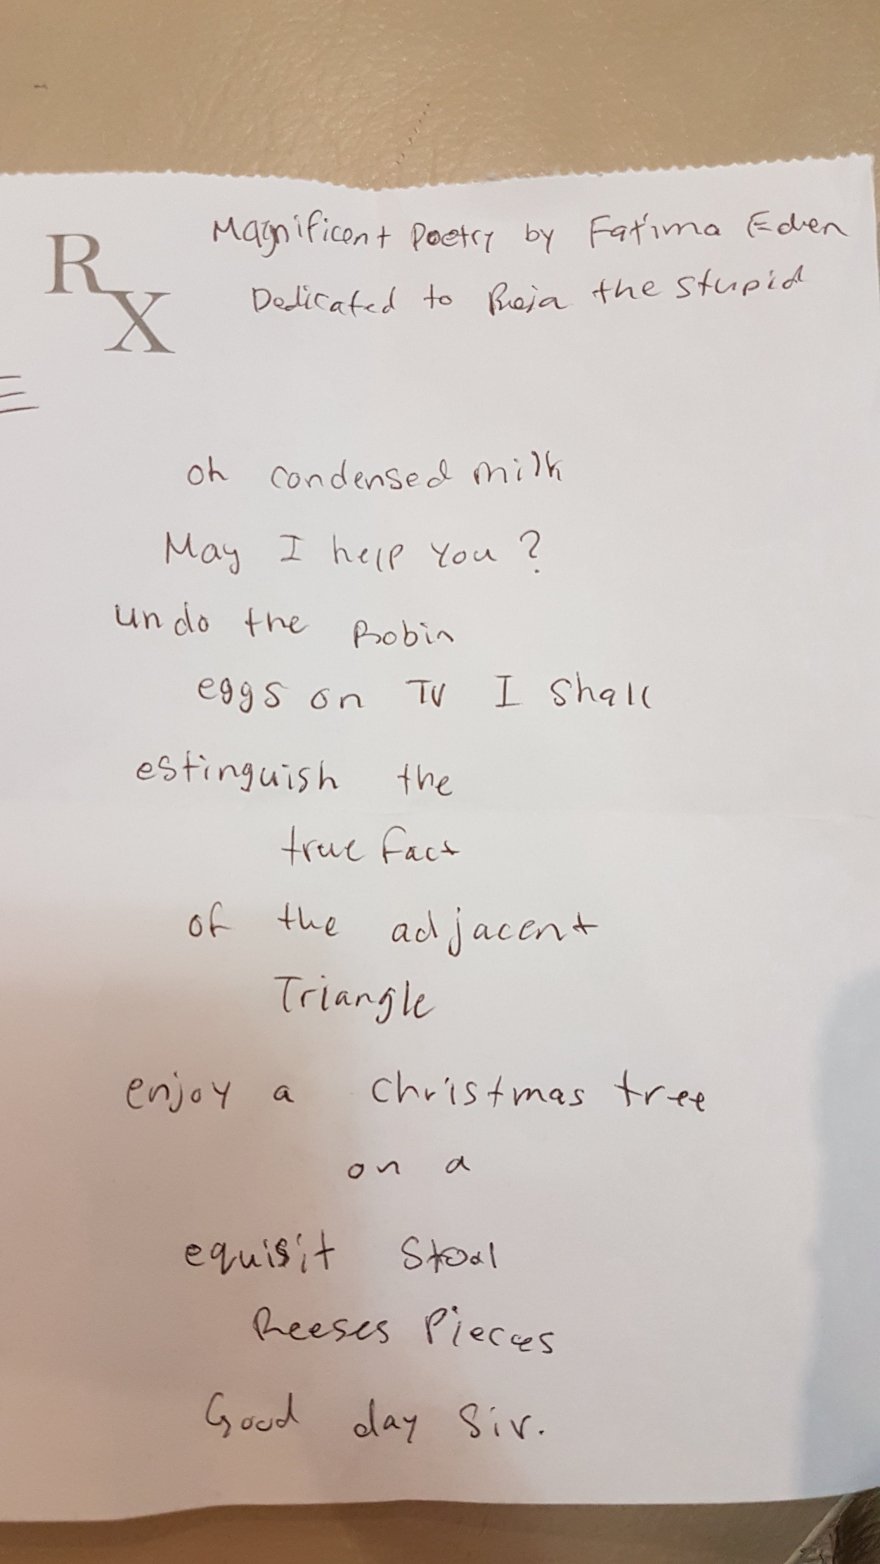 Rx
Magnificent Poetry by Fatima Eden
Dedicated to Reja the stupid
oh condensed milk
May I help you?
undo the Robin
eggs on TV I shall
estinguish the
true fact
of the adjacent
Triangle
enjoy a christmas tree
on a
equisit Stool
Reeses Pieces
Good day Sir.